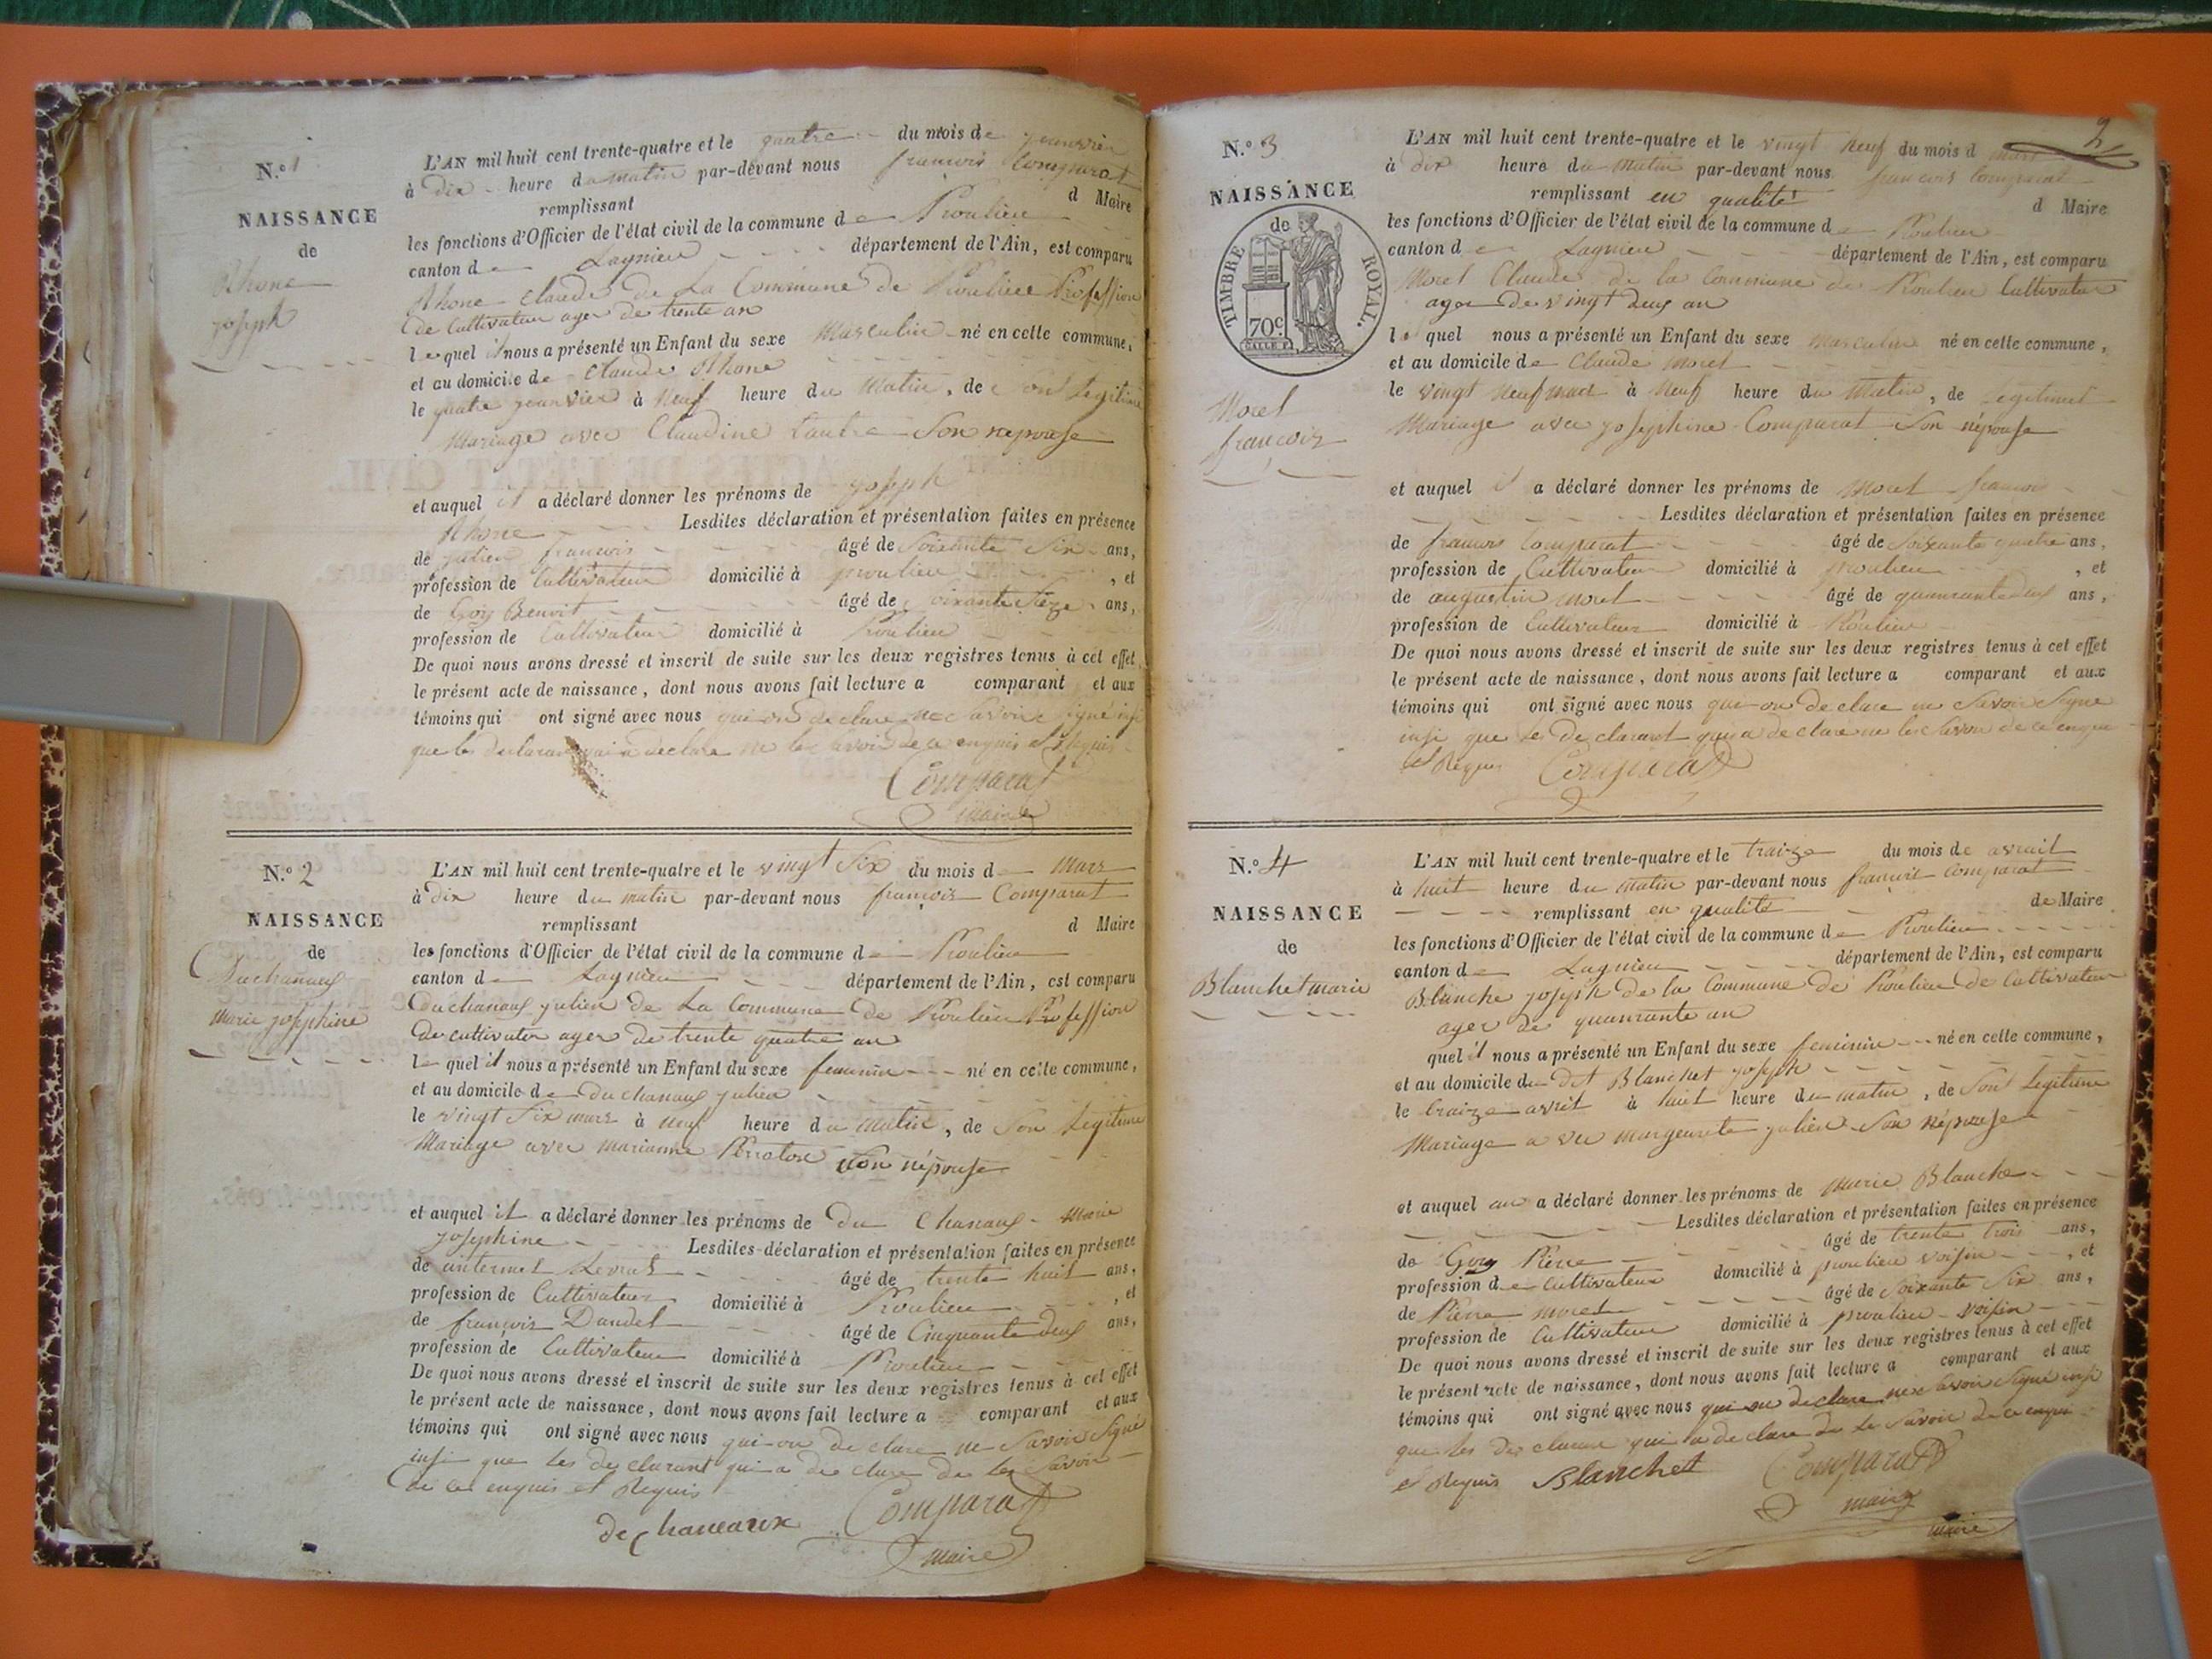 N.º 1
NAISSANCE
de
Rhone
joseph
L'AN mil huit cent trente-quatre et le quatre du mois de janvier
à dix heure du matin par-devant nous francois Comparat
remplissant d Maire
les fonctions d'Officier de l'état civil de la commune de Proulieu
canton de Lagnieu département de l'Ain, est comparu
Rhone claude de La Commune de Proulieu Profession
de Cultivateur ager de trente an
lequel il nous a présenté un Enfant du sexe Masculin né en cette commune,
et au domicile de Claude Rhone
le quatre janvier à Neuf heure du Matin, de son Legitime
Mariage avec Claudine Son nepouse
et auquel il a déclaré donner les prénoms de joseph
Rhone Lesdites déclaration et présentation faites en présence
de julien francois âgé de Soixante Six ans,
profession de Cultivateur domicilié à proulieu, et
de Goy Benoit âgé de soixante Seze ans,
profession de Cultivateur domicilié à Proulieu
De quoi nous avons dressé et inscrit de suite sur les deux registres tenus à cet effet
le présent acte de naissance, dont nous avons fait lecture a comparant et aux
témoins qui ont signé avec nous qui on declare ne Savoir signé insi
que les declarant qui a declare ne les Savoir de ce enquis et Requis
Comparat
maire
N.º 2
NAISSANCE
de
Duchanaux
Marie josephine
L'AN mil huit cent trente-quatre et le vingt Six du mois d Mars
à dix heure du matin par-devant nous françois Comparat
remplissant d Maire
les fonctions d'Officier de l'état civil de la commune d Proulieu
canton d Lagnieu département de l'Ain, est comparu
Duchanaux julien de La Commune de Proulieu Profession
De cultivateur ager de trente quatre an
le quel il nous a présenté un Enfant du sexe feminin né en cette commune,
et au domicile d duchanaux julien
le vingt Six mars à neuf heure du matin, de Son Legitime
Mariage avec marianne Perreton Son népouse
et auquel il a déclaré donner les prénoms de du Chanaux Marie
josephine Lesdites déclaration et présentation faites en présence
de antermet Levrat âgé de trente huit ans,
profession de Cultivateur domicilié à Proulieu, et
de françois Dandel âgé de Cinquante deux ans,
profession de Cultivateur domicilié à Proulieu
De quoi nous avons dressé et inscrit de suite sur les deux registres tenus à cet effet
le présent acte de naissance, dont nous avons fait lecture a comparant et aux
témoins qui ont signé avec nous qui on declare ne Savoir Signé
insi que les declarant qui a declare de les Savoir
de ce enquis et Requis
dechaneaux Comparat
maire
2
N.º 3
NAISSANCE
de
TIMBRE ROYAL.
70c.
Moret
françois
L'AN mil huit cent trente-quatre et le vingt Neuf du mois d mars
à dix heure du Matin par-devant nous francois Comparat
remplissant en qualité d Maire
les fonctions d'Officier de l'état civil de la commune d Proulieu
canton d Lagnieu département de l'Ain, est comparu
Moret Claude de la Commune de Proulieu Cultivateur
ager de vingt deux an
le quel nous a présenté un Enfant du sexe masculin né en cette commune,
et au domicile de Claude moret
le vingt neuf mars à Neuf heure du Matin, de Legitimet
Mariage avec josephine Comparat Son népouse
et auquel il a déclaré donner les prénoms de Moret francois
Lesdites déclaration et présentation faites en présence
de francois Comparat âgé de Soixante quatre ans,
profession de Cultivateur domicilié à proulieu, et
de augustin moret âgé de quanrante deux ans,
profession de Cultivateur domicilié à Proulieu
De quoi nous avons dressé et inscrit de suite sur les deux registres tenus à cet effet
le présent acte de naissance, dont nous avons fait lecture a comparant et aux
témoins qui ont signé avec nous qui on declare ne Savoir Signe
insi que les declarant qui a declare ne les Savoir de ce enquis
et Requis Comparat
N.º 4
NAISSANCE
de
Blanchet marie
L'AN mil huit cent trente-quatre et le traize du mois de avrait
à huit heure du Matin par-devant nous françois Comparat
remplissant en qualité de Maire
les fonctions d'Officier de l'état civil de la commune d Proulieu
canton d Lagnieu département de l'Ain, est comparu
Blanche joseph de la Commune de Proulieu de Cultivateur
ager de quanrante an
quel il nous a présenté un Enfant du sexe feminin né en cette commune,
et au domicile du Dit Blanchet joseph
le traize avril à huit heure du matin, de Son Legitime
Mariage a vec margeurete julien Son népouse
et auquel a déclaré donner les prénoms de Marie Blanche
Lesdites déclaration et présentation faites en présence
de Goy Piere âgé de trente trois ans,
profession de Cultivateur domicilié à proulieu voisin, et
de Pierre moret âgé de Soixante Six ans,
profession de Cultivateur domicilié à proulieu voisin
De quoi nous avons dressé et inscrit de suite sur les deux registres tenus à cet effet
le présent acte de naissance, dont nous avons fait lecture a comparant et aux
témoins qui ont signé avec nous qui on declare ne Savoir Signe insi
que les declarant qui a declare de le Savoir de ce enquis
et Requis Blanchet Comparat
maire
maire